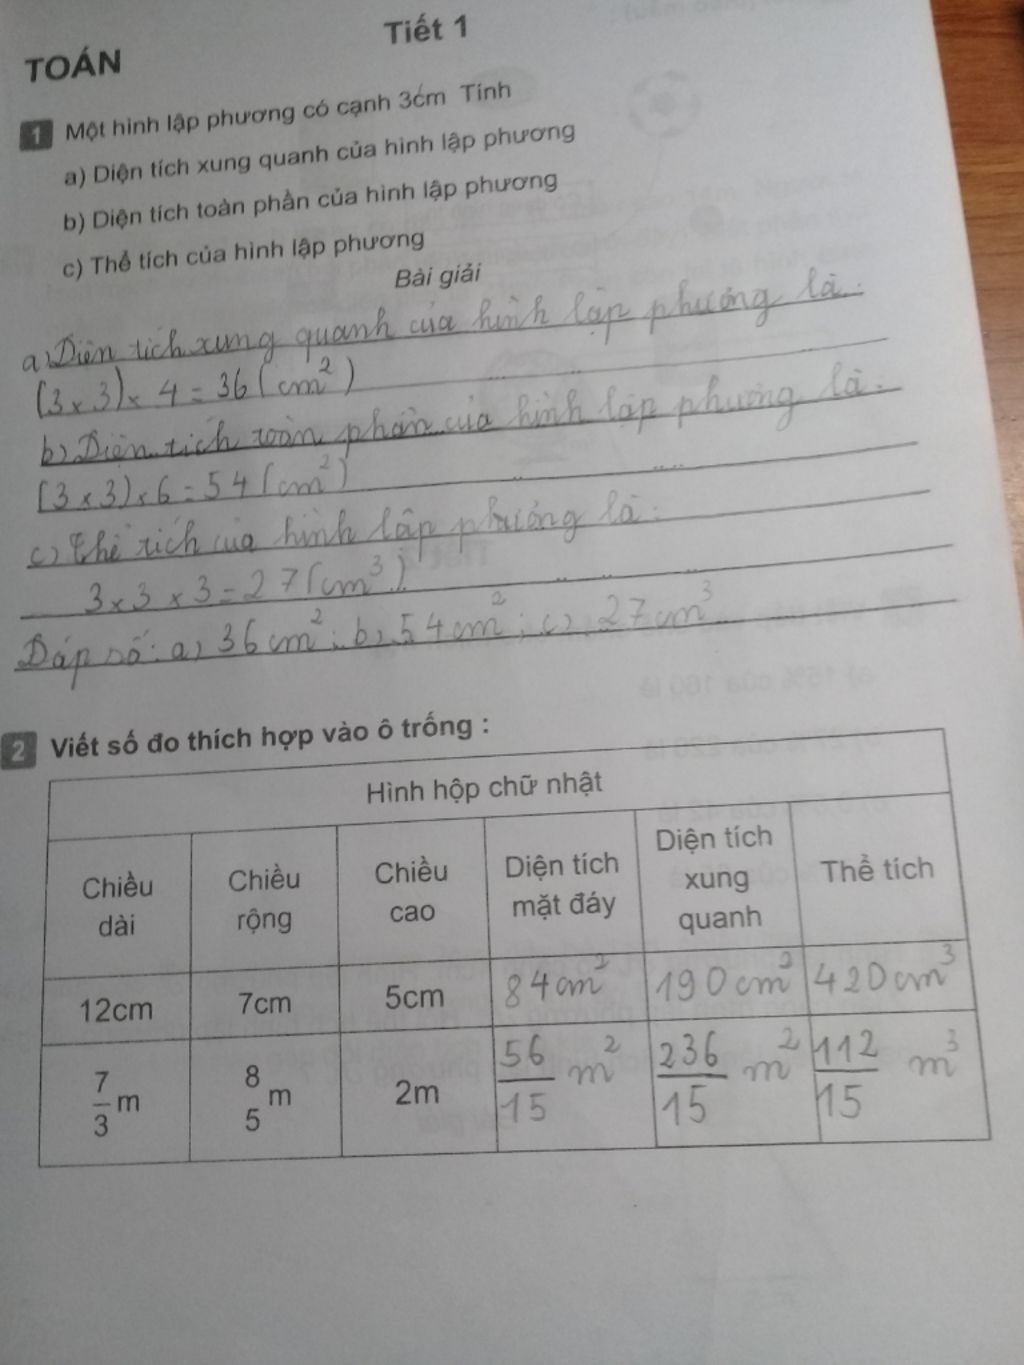 Tiết 1
TOÁN
1 Một hình lập phương có cạnh 3cm Tính
a) Diện tích xung quanh của hình lập phương
b) Diện tích toàn phần của hình lập phương
c) Thể tích của hình lập phương
Bài giải
a) Diện tích xung quanh của hình lập phương là:
(3 x 3) x 4 = 36 (cm²)
b) Diện tích toàn phần của hình lập phương là:
(3 x 3) x 6 = 54 (cm²)
c) Thể tích của hình lập phương là:
3 x 3 x 3 = 27 (cm³)
Đáp số: a) 36 cm²; b) 54 cm²; c) 27 cm³
2 Viết số đo thích hợp vào ô trống :
Hình hộp chữ nhật
Chiều dài | Chiều rộng | Chiều cao | Diện tích mặt đáy | Diện tích xung quanh | Thể tích
12cm | 7cm | 5cm | 84 cm² | 190 cm² | 420 cm³
7/3 m | 8 5 m | 2m | 56/15 m² | 236/15 m² | 112/15 m³